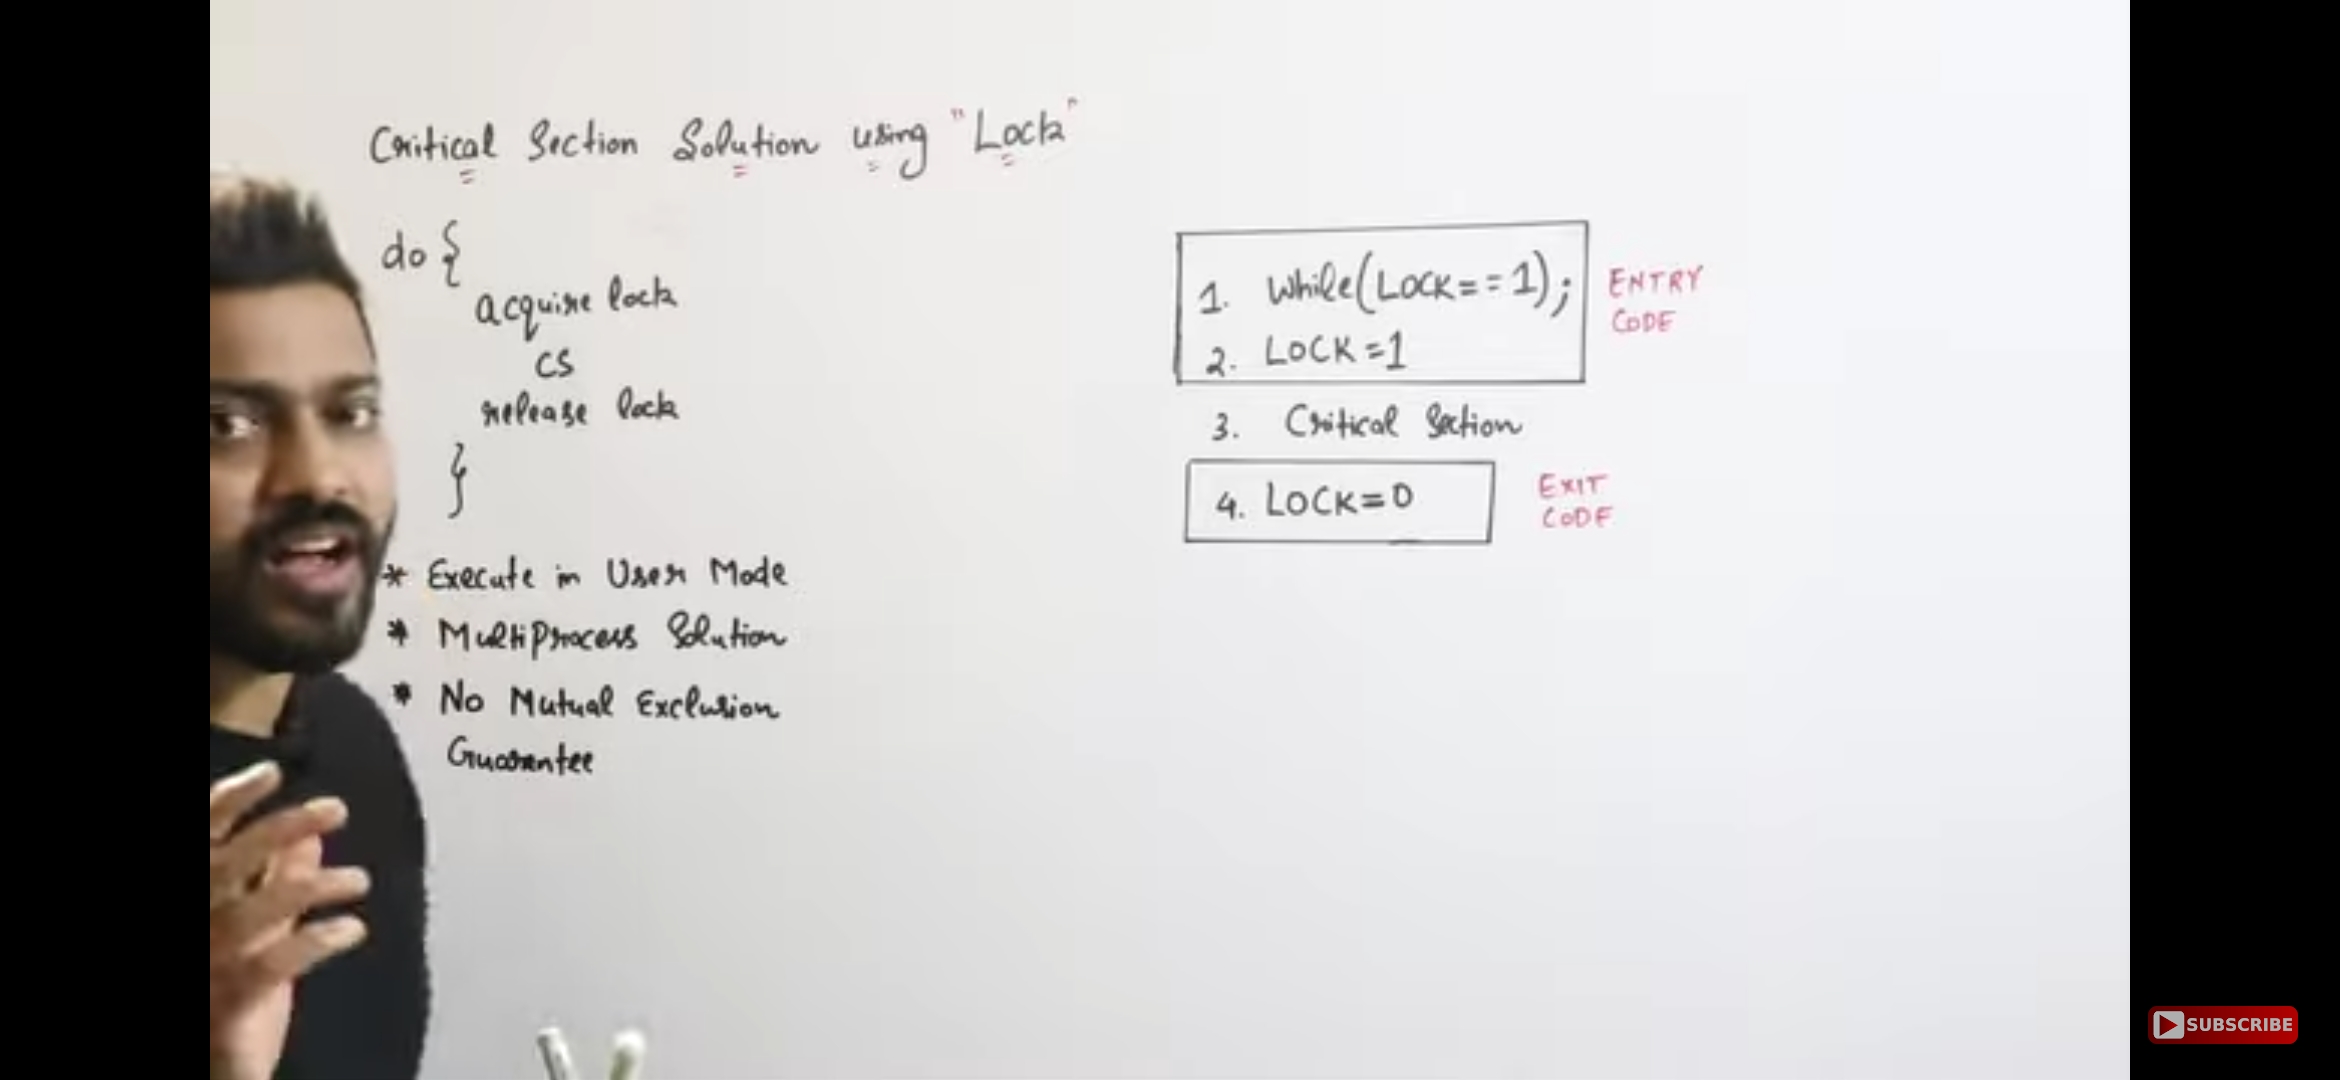 Critical Section Solution using "Lock"
do {
acquire lock
CS
release lock
}
* Execute in User Mode
* MultiProcess Solution
* No Mutual Exclusion
Guarantee
1. While(LOCK==1);
2. LOCK=1
ENTRY
CODE
3. Critical Section
4. LOCK=0
EXIT
CODE
SUBSCRIBE